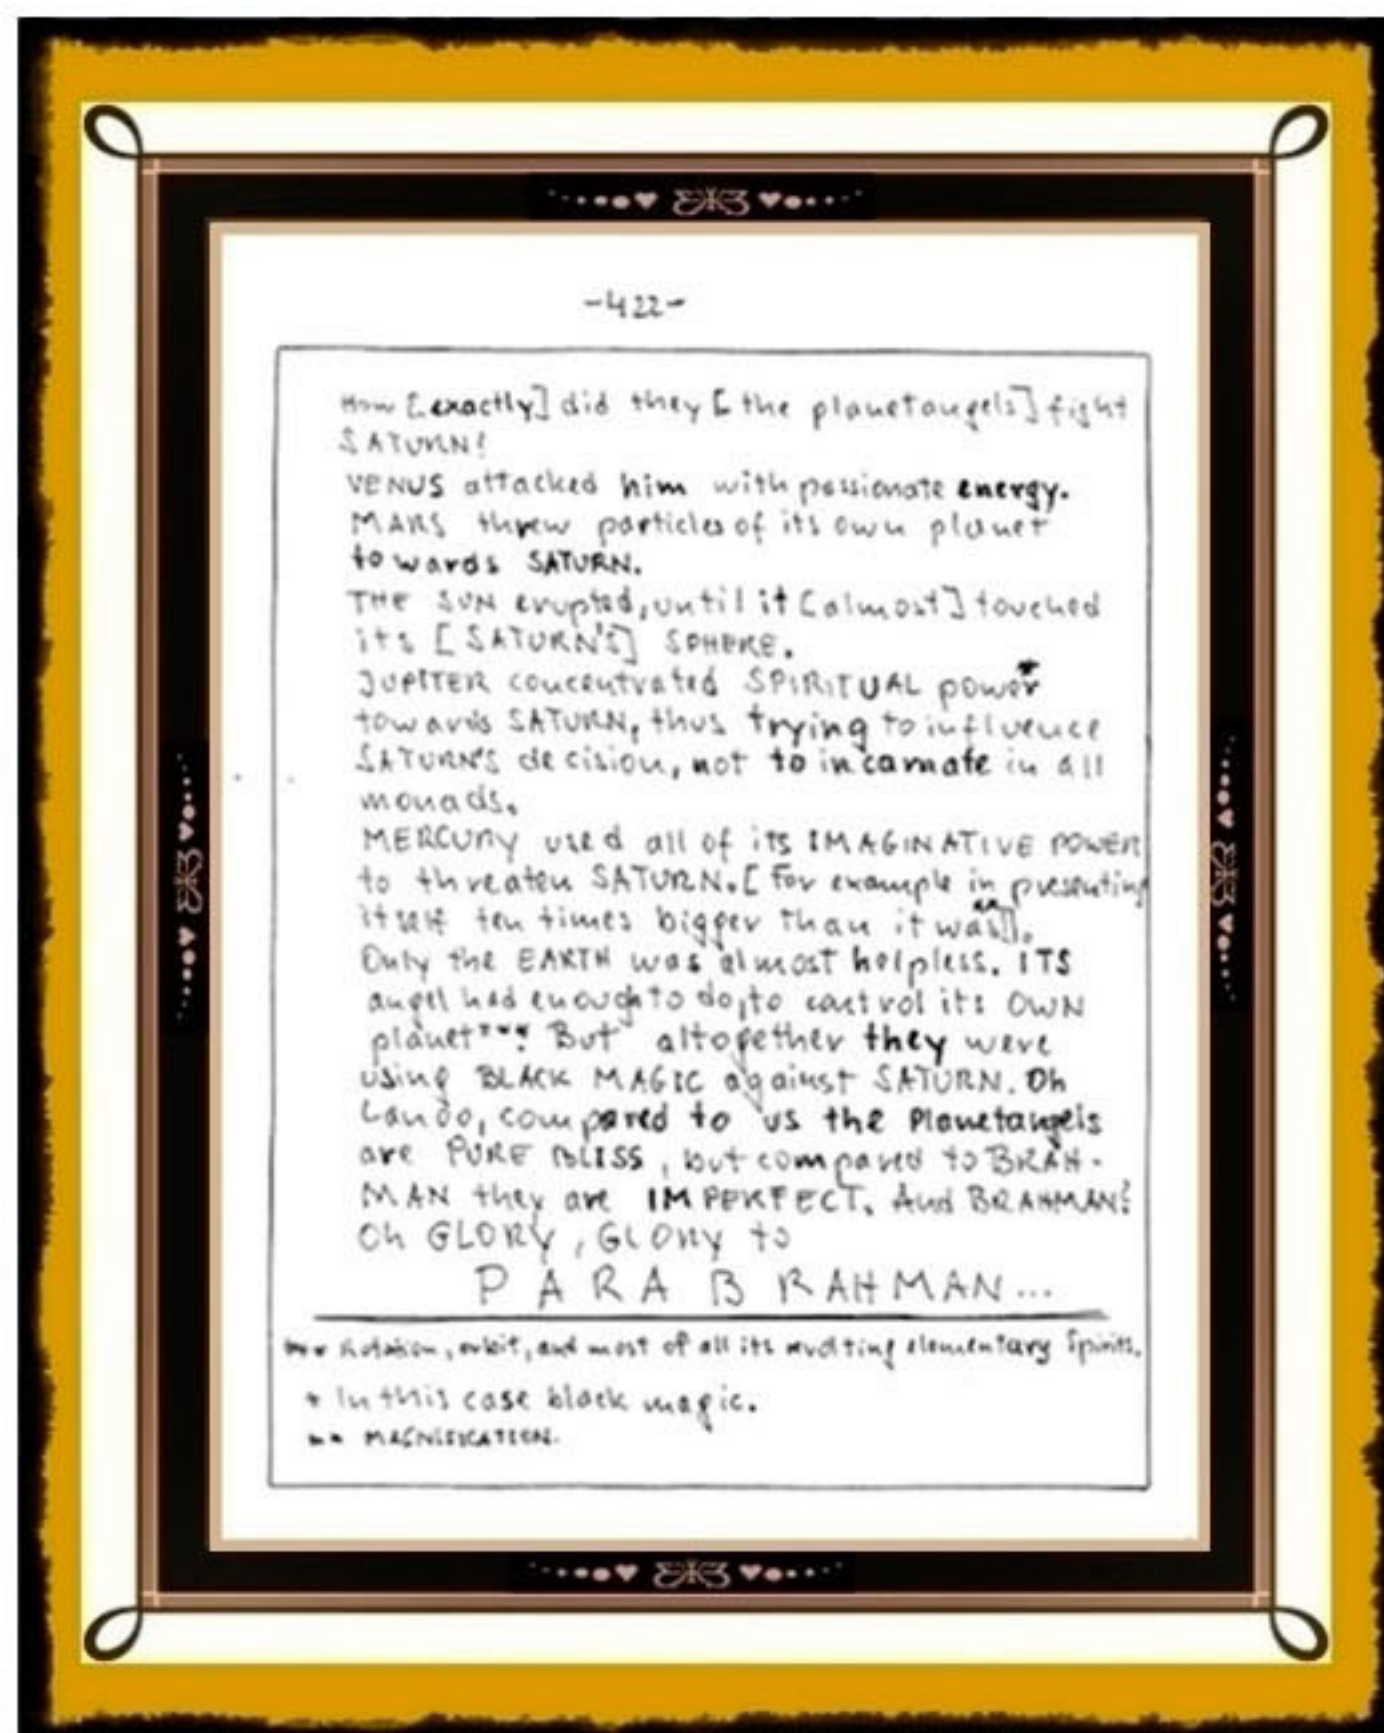 -422-
How [exactly] did they [the planetangels] fight
SATURN?
VENUS attacked him with passionate energy.
MARS threw particles of its own planet
towards SATURN.
THE SUN erupted, until it [almost] touched
its [SATURN'S] SPHERE.
JUPITER concentrated SPIRITUAL power*
towards SATURN, thus trying to influence
SATURN'S decision, not to incarnate in all
monads.
MERCURY used all of its IMAGINATIVE POWER
to threaten SATURN. [For example in presenting
itself ten times bigger than it was**].
Only the EARTH was almost helpless. ITS
angel had enough to do, to control its OWN
planet***! But altogether they were
using BLACK MAGIC against SATURN. Oh
Lando, compared to us the Planetangels
are PURE BLISS, but compared to BRAH-
MAN they are IMPERFECT. And BRAHMAN?
Oh GLORY, GLORY to
PARABRAHMAN...
*** Rotation, orbit, and most of all its revolting elementary Spirits.
* In this case black magic.
** MAGNIFICATION.